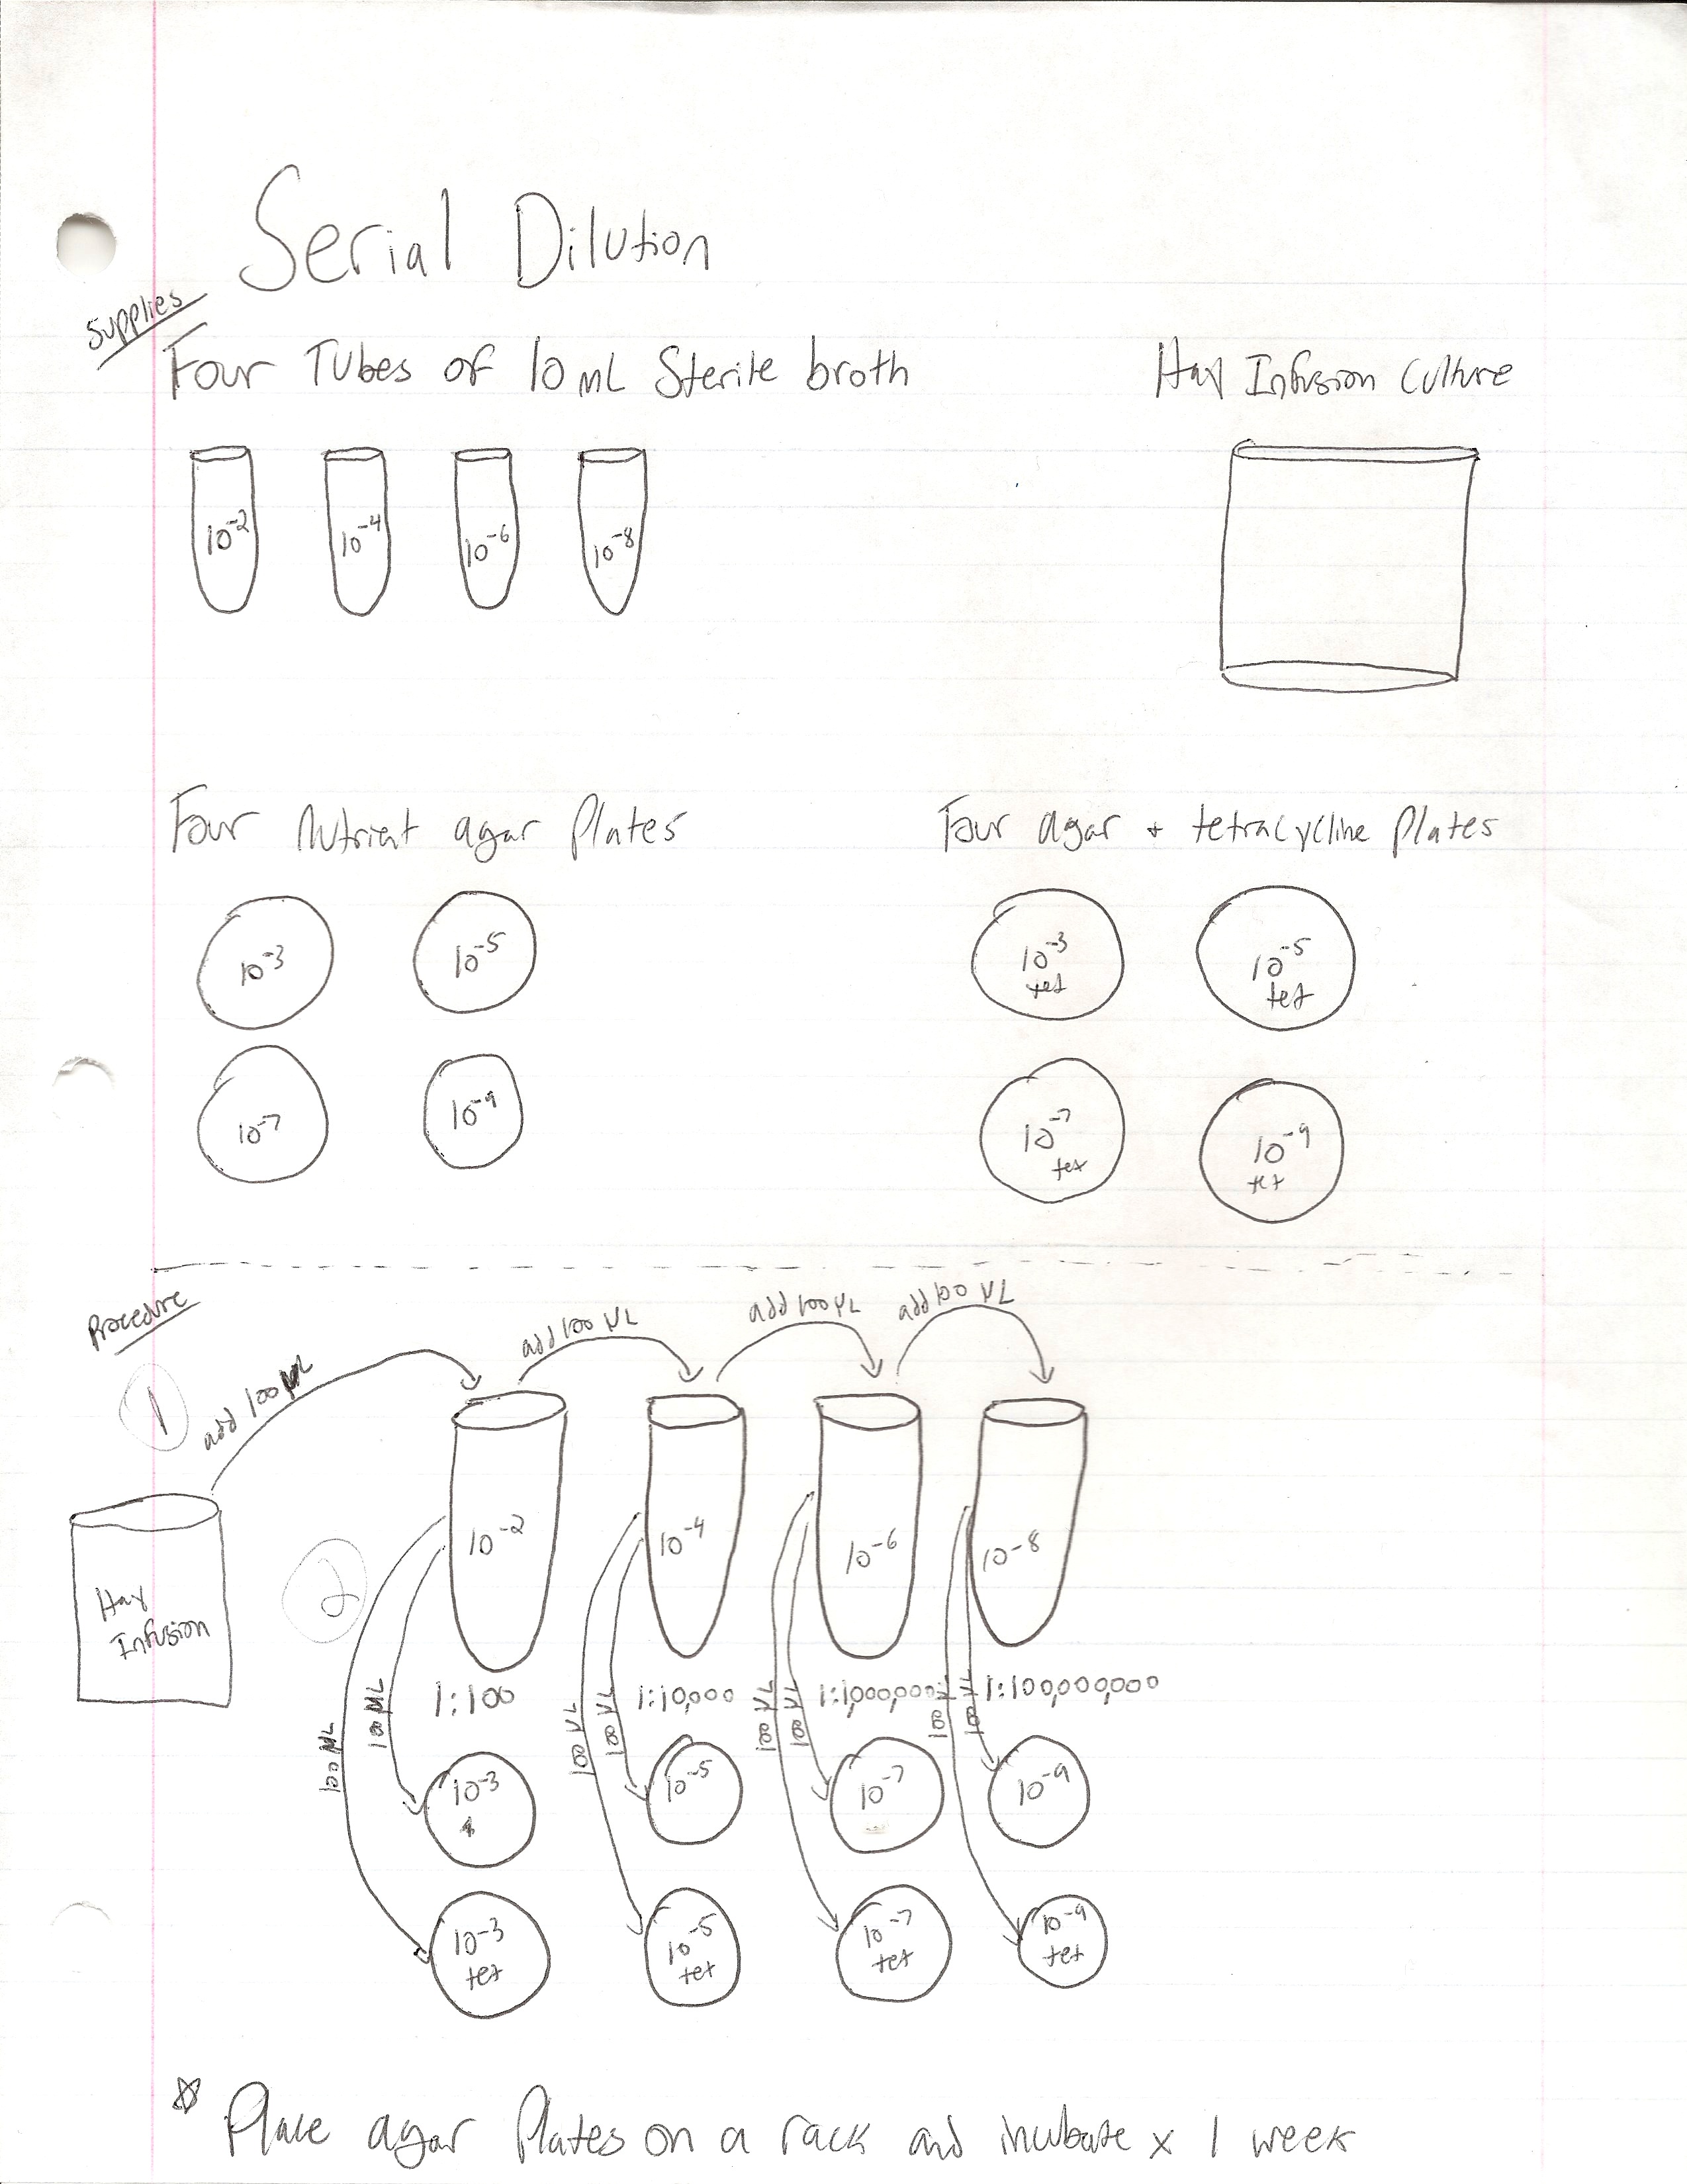 Serial Dilution
Supplies
Four Tubes of 10 mL Sterile broth
Hay Infusion Culture
10⁻² 10⁻⁴ 10⁻⁶ 10⁻⁸
Four Nutrient agar Plates
Four agar + tetracycline Plates
10⁻³ 10⁻⁵
10⁻³ tet 10⁻⁵ tet
10⁻⁷ 10⁻⁹
10⁻⁷ tet 10⁻⁹ tet
Procedure
1
add 100 µL
add 100 µL
add 100 µL
add 100 µL
Hay
Infusion
2
10⁻² 10⁻⁴ 10⁻⁶ 10⁻⁸
1:100 1:10,000 1:1,000,000 1:100,000,000
100 µL 100 µL 100 µL 100 µL 100 µL 100 µL 100 µL 100 µL
10⁻³ 10⁻⁵ 10⁻⁷ 10⁻⁹
10⁻³ tet 10⁻⁵ tet 10⁻⁷ tet 10⁻⁹ tet
☆ Place agar Plates on a rack and incubate x 1 week